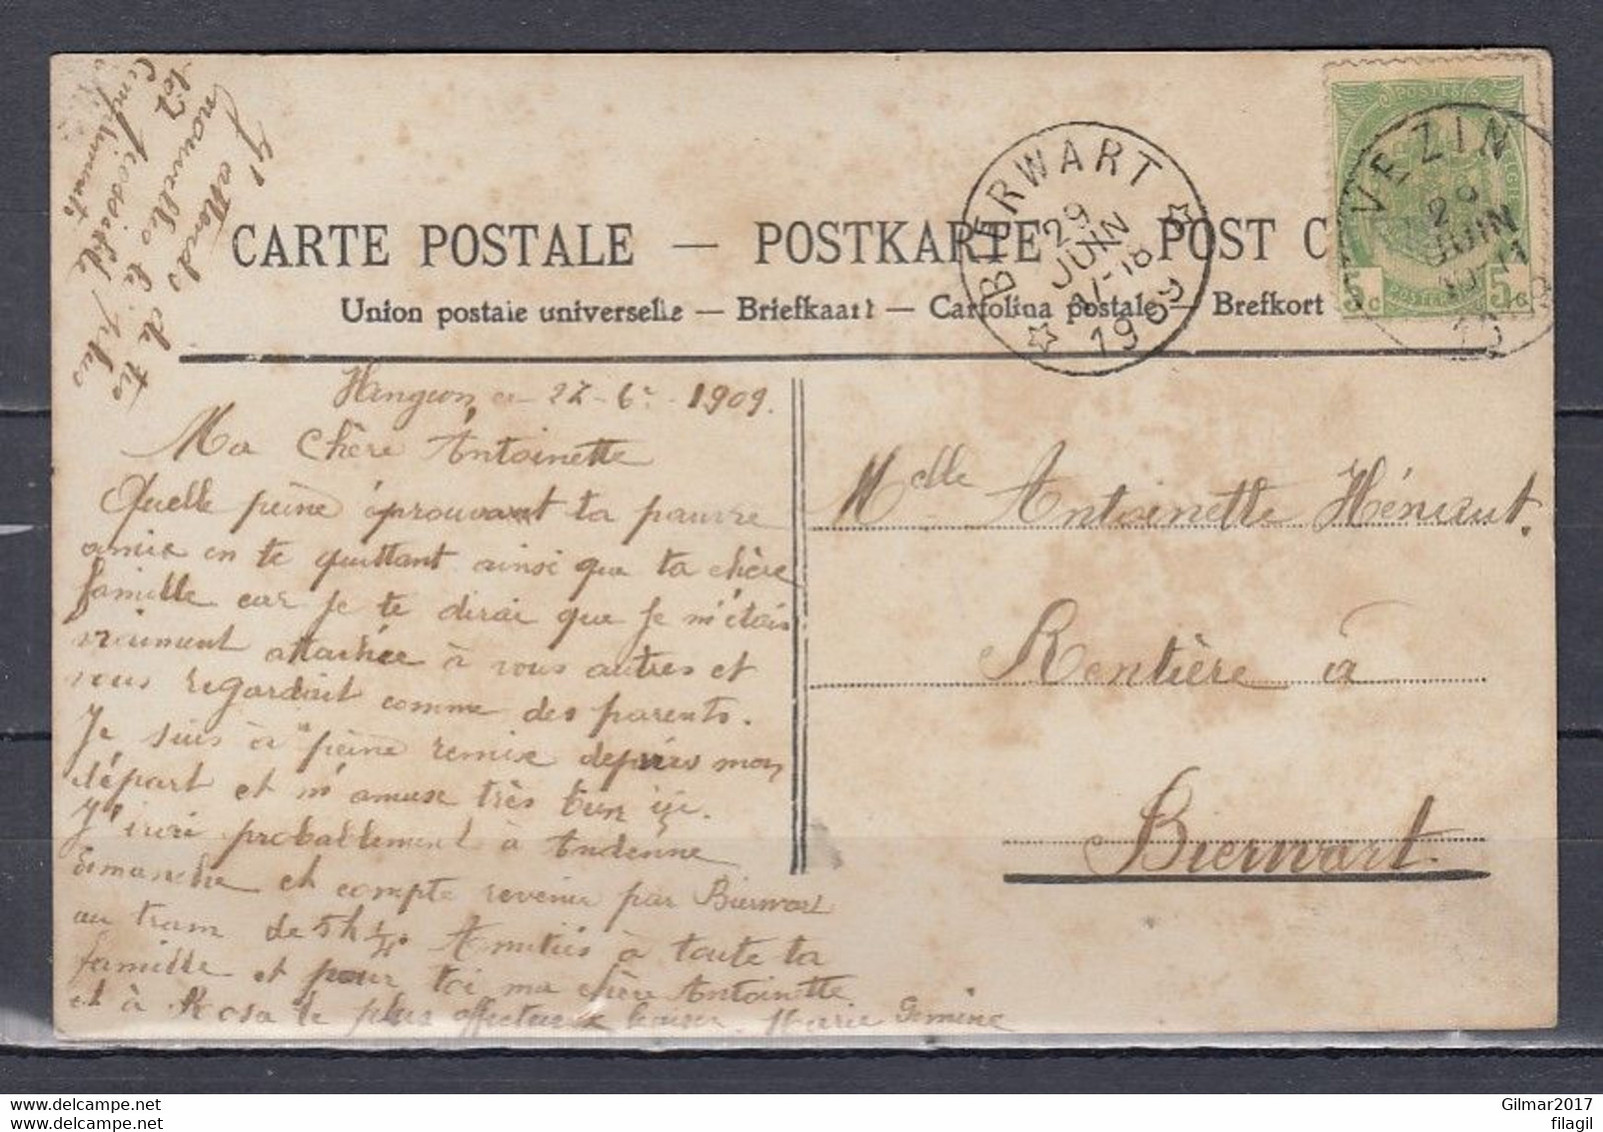 J'attends de tes
nouvelles le plus
tôt possible
Compliments
CARTE POSTALE — POSTKARTE — POST C
Union postale universelle — Briefkaart — Cartolina postale — Brefkort
BIERWART
29
JUIN
17-18
1909
VEZIN
29
JUIN
10-11
POSTES
5 C
5 C
27-6-1909.
Ma Chère Antoinette
Quelle peine éprouvant ta pauvre
amie en te quittant ainsi que ta chère
famille car je te dirai que je m'étais
vraiment attachée à vous autres et
vous regardait comme des parents.
Je suis à peine remise depuis mon
départ et m'amuse très bien ici.
J'irai probablement à Andenne
dimanche et compte revenir par Bierwart
au tram de 5h 1/4. Amitiés à toute ta
famille et pour toi ma chère Antoinette
et à Rosa le plus affectueux baiser. Marie
Melle Antoinette Hénaut.
Rentière à
Bierwart.
https://www.delcampe.net
Gilmar2017
filagil